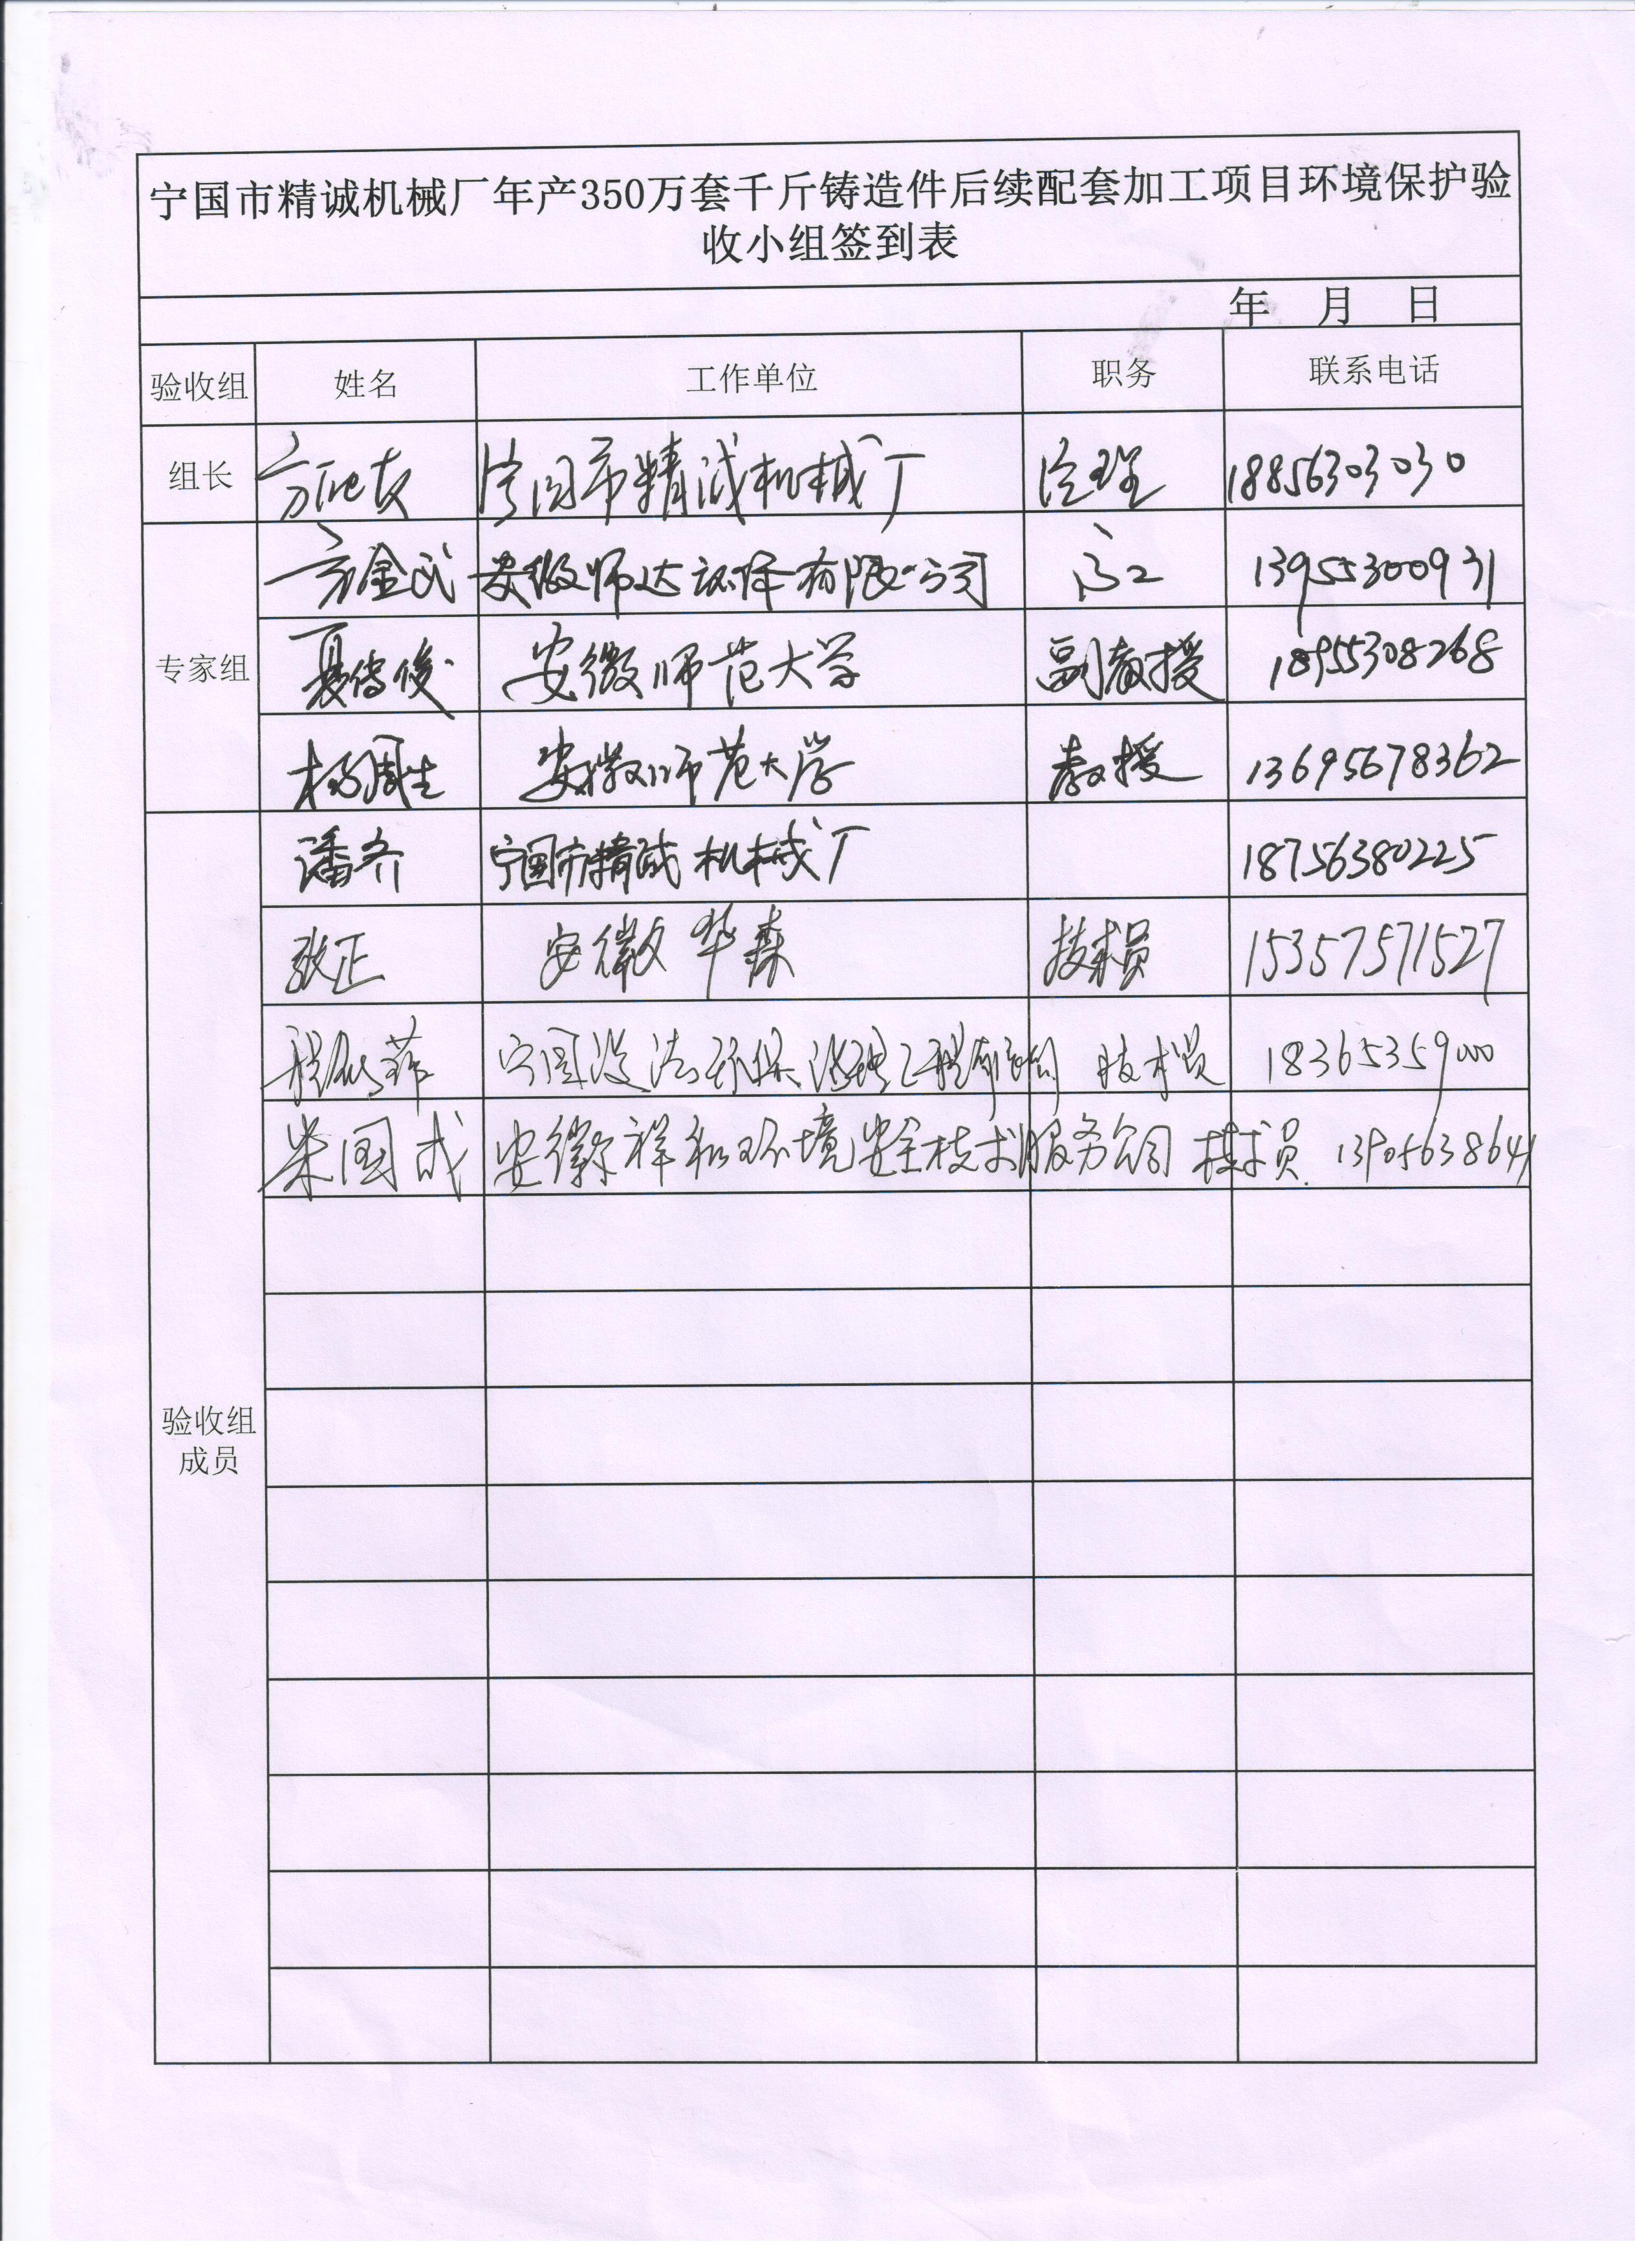 宁国市精诚机械厂年产350万套千斤铸造件后续配套加工项目环境保护验
收小组签到表
年 月 日
验收组 姓名 工作单位 职务 联系电话
组长 宁国市精诚机械厂 经理 18856303030
方金武 安徽师达环保有限公司 高工 13955300931
专家组 聂传俊 安徽师范大学 副教授 18955308268
杨周生 安徽师范大学 教授 13695678362
潘齐 宁国市精诚机械厂 18756380225
张正 安徽华森 技术员 15357571527
宁国 环保 工程有限公司 技术员 18365359000
朱国成 安徽祥和环境安全技术服务公司 技术员 13905638641
验收组
成员